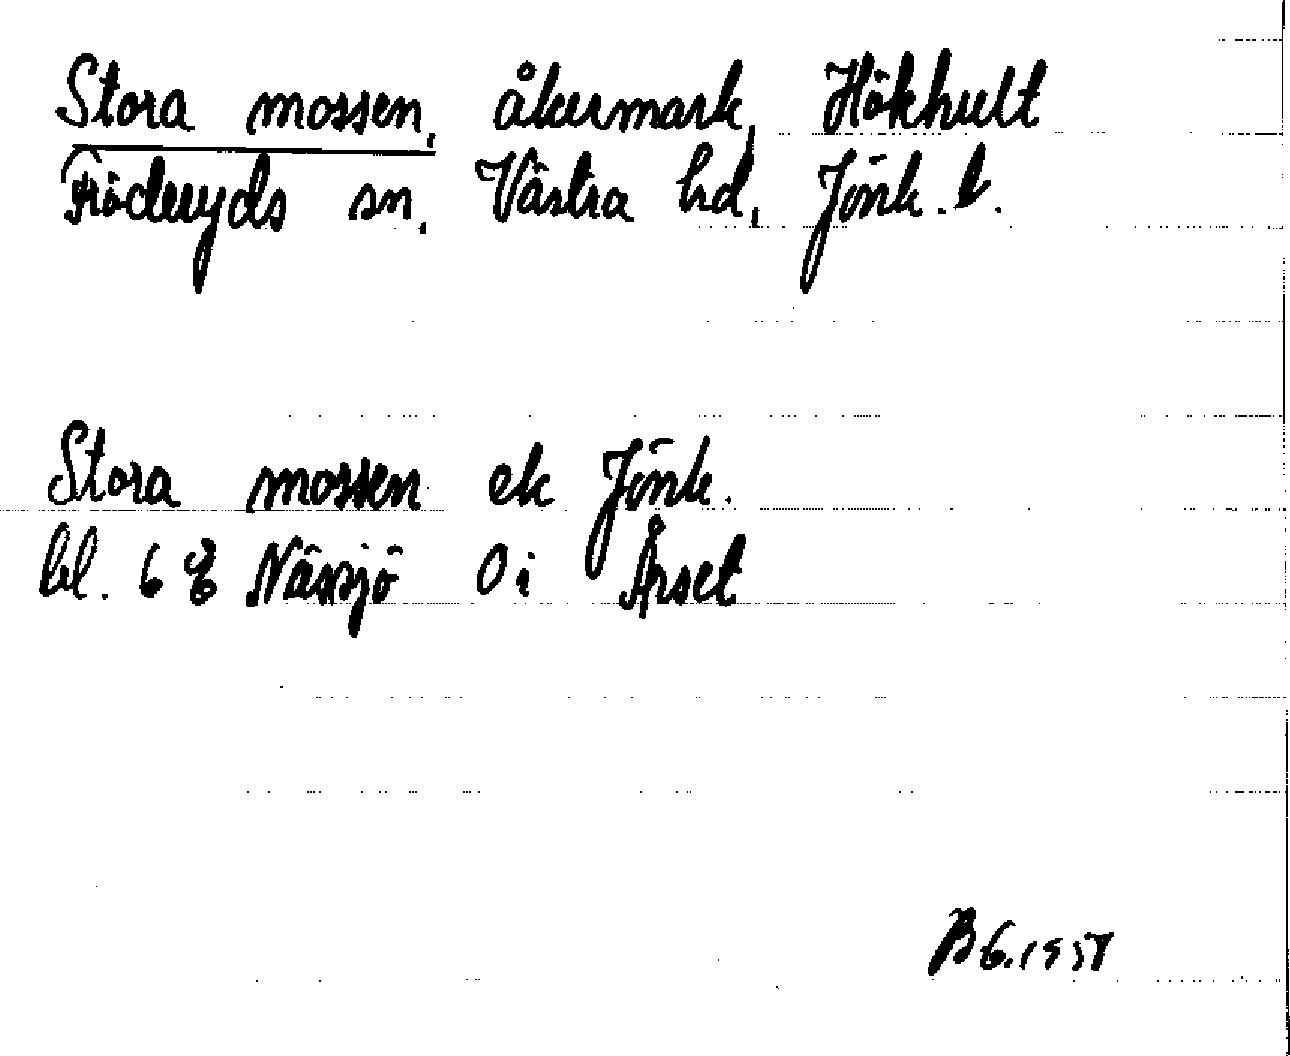 Stora mossen, åkermark, Hökhult
Fröderyds sn, Västra hd, Jönk. l.
Stora mossen ek Jönk.
bl. 6 g Nässjö Ö i Årset
BG. 1957